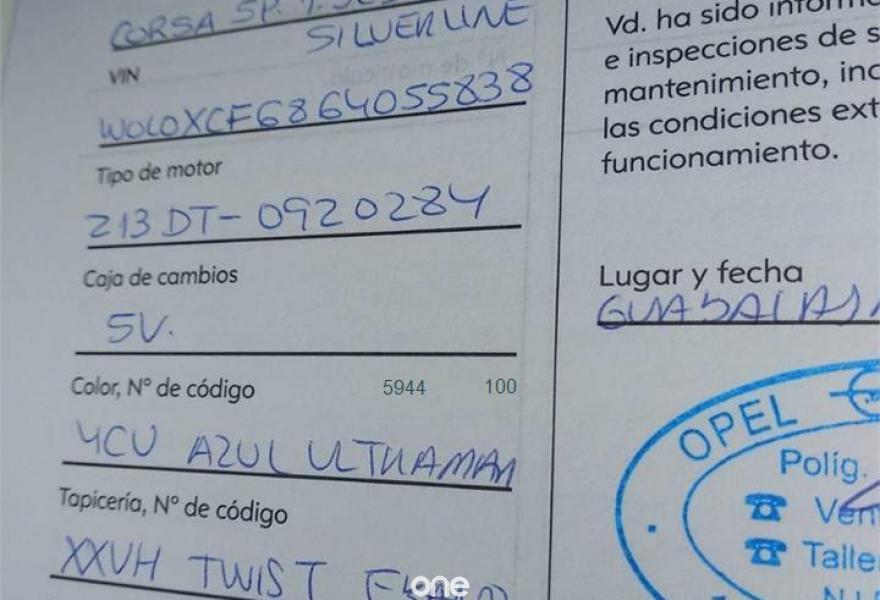 CORSA SP.
SILVERLINE
VIN
WOLOXCF6864055838
Tipo de motor
Z13DT-0920284
Caja de cambios
5V.
Color, Nº de código 5944 100
4CU AZUL ULTRAMAR
Tapicería, Nº de código
XXVH TWIST
one
Vd. ha sido inform
e inspecciones de s
mantenimiento, inc
las condiciones ext
funcionamiento.
Lugar y fecha
GUADALAJ
OPEL
Políg.
Ven
Talle